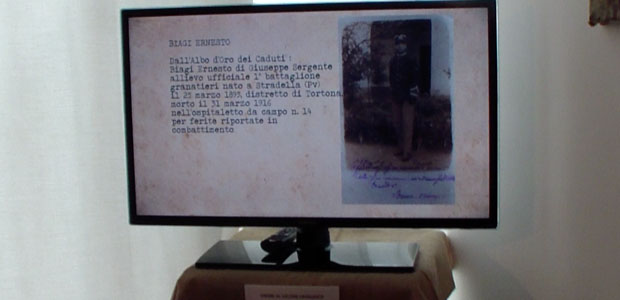 BIAGI ERNESTO
Dall'Albo d'Oro dei Caduti:
Biagi Ernesto di Giuseppe Sergente
allievo ufficiale 1° battaglione
granatieri nato a Stradella (Pv)
il 25 marzo 1895, distretto di Tortona,
morto il 31 marzo 1916
nell'ospitaletto da campo n. 14
per ferite riportate in
combattimento